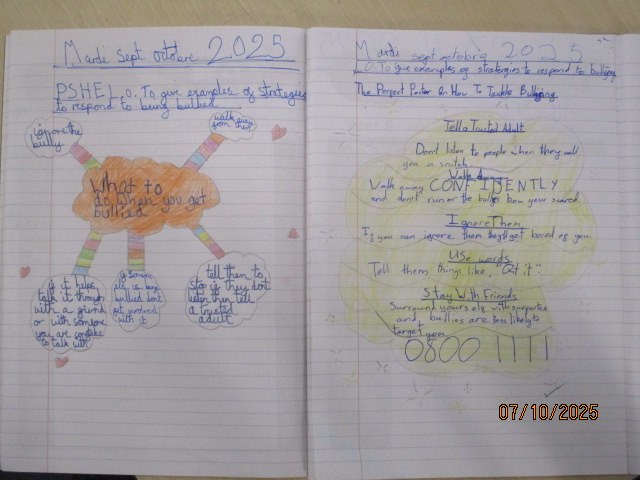 Mardi sept octobre 2025
PSHE L.O. To give examples of strategies
to respond to being bullied
ignore the
bully
walk away
from them
What to
do when you get
bullied
if it helps
talk it through
with a friend
or with someone
you are
to talk with
if someone
els is being
bullied dont
get involved
with it
tell them to
stop if they dont
listen then tell
a trusted
adult
Mardi sept octobre 2025
L.O. To give examples of stratergies to respond to bullying
The Perfect Poster On How To Tackle Bullying
Tell a Trusted Adult
Dont listen to people when they call
you a snitch.
Walk Away
Walk away CONFIDENTLY
and don't run or the bullies know your scared.
Ignore Them
If you can ignore them they'll get bored of you.
Use words
Tell them things like, "Quit it".
Stay With Friends
Surround yourself with supportive
and bullies are less likely to
target you
0800 1111
07/10/2025